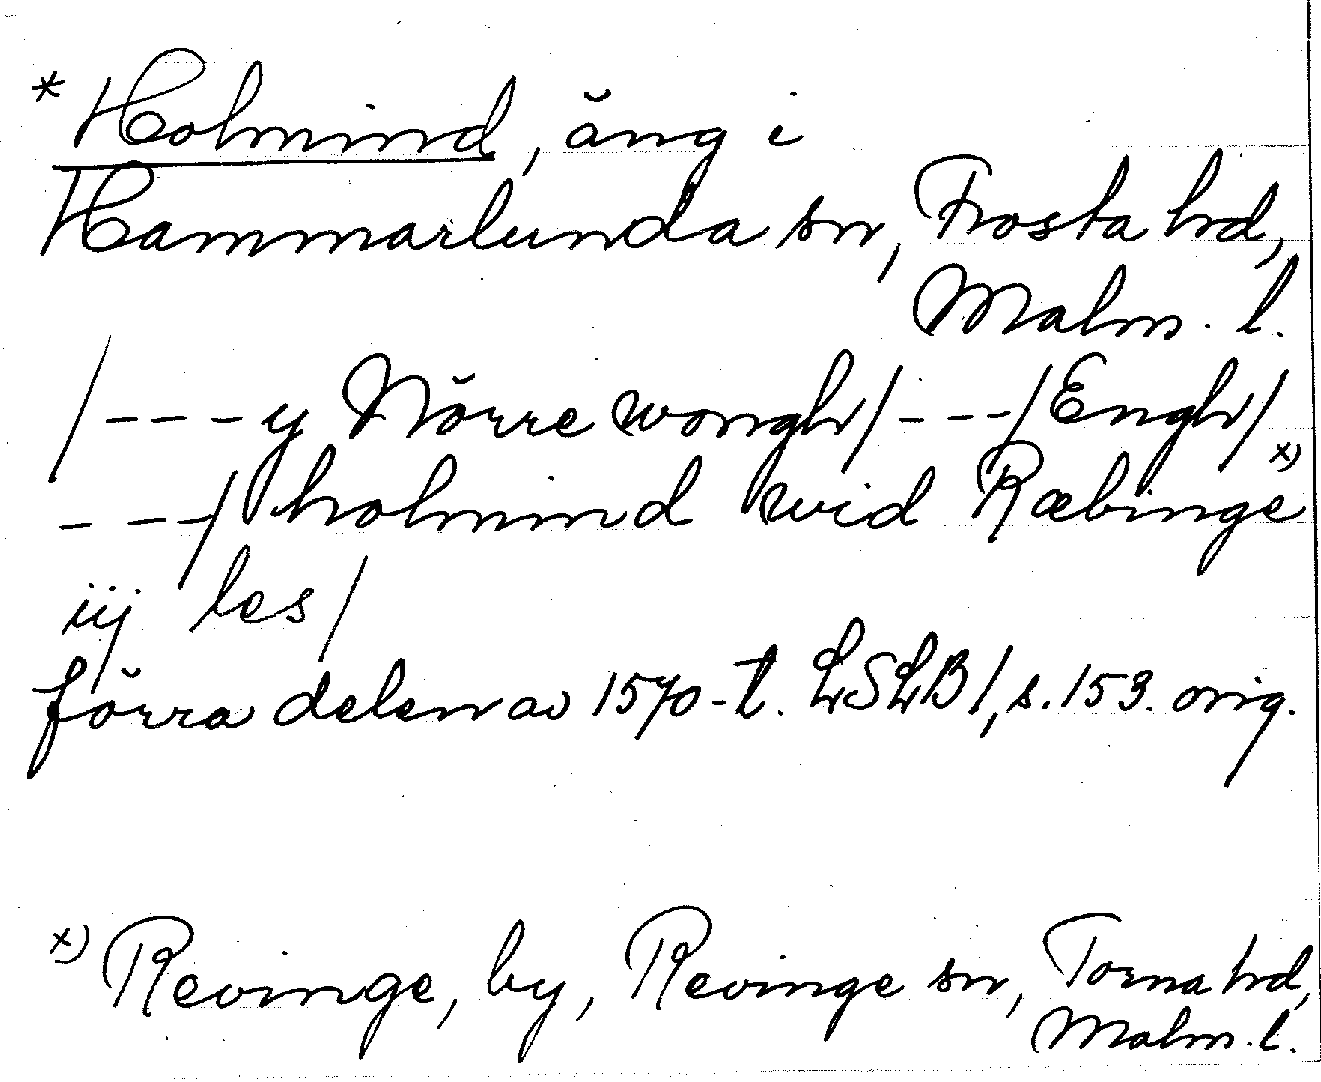 * Holmind, äng i
Hammarlunda sn, Frosta hd,
Malm. l.
/---y Nörre wongh/---/Engh/
---/ holmind wid Ræbinge x)
iij les/
förra delen av 1570-t. LSLB 1, s. 153. orig.
x) Revinge, by, Revinge sn, Torna hd,
Malm. l.